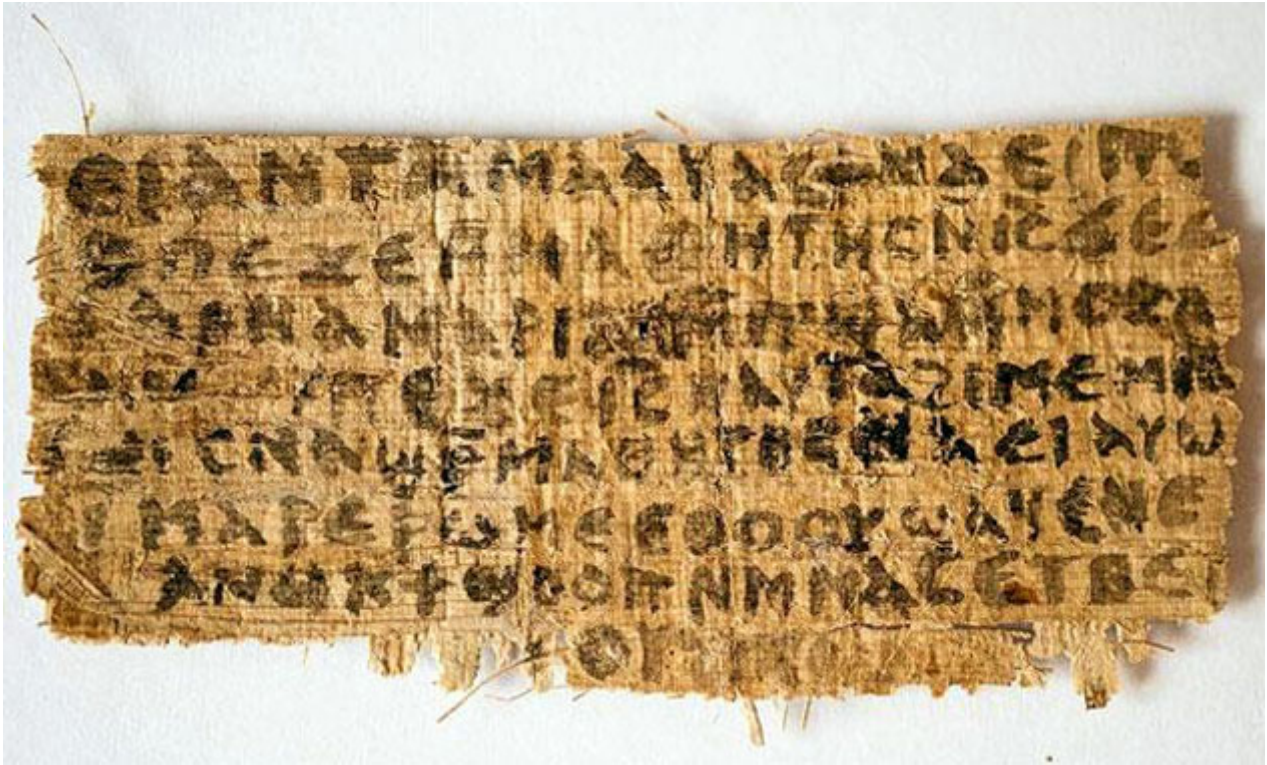 ⲉⲓ ⲁⲛ ⲧⲁⲙⲁⲁⲩ ⲁⲥϯ ⲛⲁⲉⲓ ⲡ
ⲡⲉϫⲉ ⲙⲙⲁⲑⲏⲧⲏⲥ ⲛⲓ̅ⲥ̅ ϫⲉ ⲥ
ⲁⲣⲛⲁ ⲙⲁⲣⲓⲁⲙ ⲙⲡϣⲁ ⲙⲙⲟⲥ ⲁ
ⲡⲉϫⲉ ⲓ̅ⲥ̅ ⲛⲁⲩ ⲧⲁϩⲓⲙⲉ ⲙⲛ
ⲥⲛⲁϣⲣⲙⲁⲑⲏⲧⲏⲥ ⲛⲁⲉⲓ ⲁⲩⲱ
ⲓ ⲙⲁⲣⲉⲣⲱⲙⲉ ⲉⲑⲟⲟⲩ ϣⲁϥⲉ ⲛⲉ
ⲁⲛⲟⲕ ϯϣⲟⲟⲡ ⲛⲙⲙⲁⲥ ⲉⲧⲃⲉ